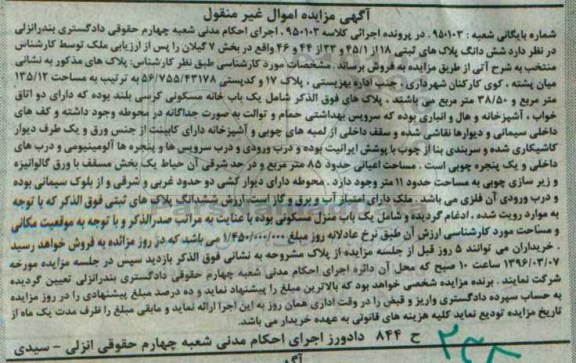 آگهی مزایده اموال غیر منقول
شماره بایگانی شعبه : ۹۵۰۱۰۳ . در پرونده اجرائی کلاسه ۹۵۰۱۰۳ . اجرای احکام مدنی شعبه چهارم حقوقی دادگستری بندرانزلی
در نظر دارد شش دانگ پلاک های ثبتی ۱۸ از ۴۵/۱ و ۳۳ از ۴۴ و ۴۶ واقع در بخش ۷ گیلان را پس از ارزیابی ملک توسط کارشناس
منتخب به شرح آتی از طریق مزایده به فروش برساند . مشخصات مورد کارشناسی طبق نظر کارشناس: پلاک های مذکور به نشانی
میان پشته ، کوی کارکنان شهرداری ، جنب اداره بهزیستی ، پلاک ۱۷ و کدپستی ۵۶/۷۵۵/۴۳۱۷۸ به ترتیب به مساحت ۱۳۵/۱۲
متر مربع و ۳۸/۵۰ متر مربع می باشند . پلاک های فوق الذکر شامل یک باب خانه مسکونی کرسی بلند بوده که دارای دو اتاق
خواب ، آشپزخانه و هال و انباری بوده که سرویس بهداشتی حمام و توالت به صورت جداگانه در محوطه وجود داشته و کف های
داخلی سیمانی و دیوارها نقاشی شده و سقف داخلی از لمبه های چوبی و آشپزخانه دارای کابینت از جنس ورق و یک طرف دیوار
کاشیکاری شده و سربندی بنا از چوب با پوشش ایرانیت بوده و درب ورودی و درب سرویس ها و پنجره ها آلومینیومی و درب های
داخلی و یک پنجره چوبی است . مساحت اعیانی حدود ۸۵ متر مربع و در حد شرقی آن حیاط یک بخش مسقف با ورق گالوانیزه
و زیر سازی چوبی به مساحت حدود ۱۱ متر وجود دارد . محوطه دارای دیوار کشی دو حدود غربی و شرقی و از بلوک سیمانی بوده
و درب ورودی آن فلزی می باشد . ملک دارای امتیاز آب و برق و گاز است. ارزش ششدانگ پلاک های ثبتی فوق الذکر که با توجه
به موارد رویت شده ، ادغام گردیده و شامل یک باب منزل مسکونی بوده با عنایت به مراتب صدرالذکر و با توجه به موقعیت مکانی
و مساحت مورد کارشناسی ارزش آن طبق نرخ عادلانه روز مبلغ ۱/۴۵۰/۰۰۰/۰۰۰ می باشد که در روز مزائده به فروش خواهد رسید
. خریداران می توانند ۵ روز قبل از جلسه مزایده از پلاک مشروحه به نشانی فوق الذکر بازدید سپس در جلسه مزایده مورخه
۱۳۹۶/۰۳/۰۷ ساعت ۱۰ صبح که محل آن دائره اجرای احکام مدنی شعبه چهارم حقوقی دادگستری بندرانزلی تعیین گردیده
شرکت نمایند . برنده مزایده شخصی خواهد بود که بالاترین مبلغ را پیشنهاد نماید و ده درصد مبلغ پیشنهادی را در روز مزایده
به حساب سپرده دادگستری واریز و قبض را در وقت اداری همان روز به این اجرا ارائه نماید و مابقی مبلغ را ظرف مدت یک ماه از
تاریخ مزایده تودیع نماید کلیه هزینه های قانونی به عهده خریدار می باشد.
ح ۸۴۴ دادورز اجرای احکام مدنی شعبه چهارم حقوقی انزلی - سیدی